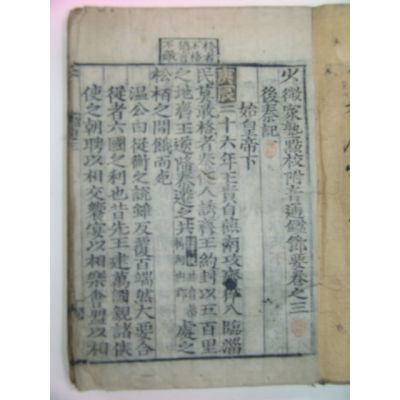 少微家塾點校附音通鑑節要卷之三
後秦記
始皇帝下
庚辰二十六年王賁自燕南攻齊猝入臨淄
民莫敢格者秦使人誘齊王約封以五百里
之地齊王遂降秦遷之共處之
松柏之間餓而死
溫公曰從衡之說雖反覆百端然大要合
從者六國之利也昔先王建萬國親諸侯
使之朝聘以相交饗宴以相樂會盟以相